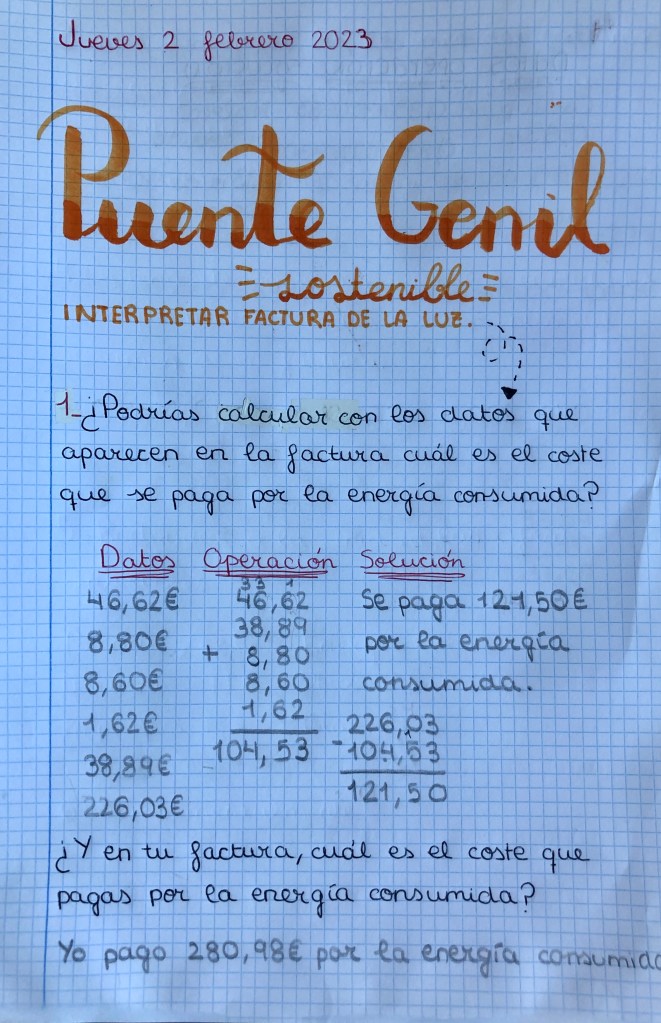 Jueves 2 febrero 2023
Puente Genil
=sostenible=
INTERPRETAR FACTURA DE LA LUZ.
1-¿Podrías calcular con los datos que
aparecen en la factura cuál es el coste
que se paga por la energía consumida?
Datos Operación Solución
3 3 1
46,62€ 46,62 Se paga 121,50€
8,80€ 38,89 por la energía
+ 8,80
8,60€ 8,60 consumida.
1,62€ 1,62 226,03
38,89€ 104,53 -104,53
226,03€ 121,50
¿Y en tu factura, cuál es el coste que
pagas por la energía consumida?
Yo pago 280,98€ por la energía consumida